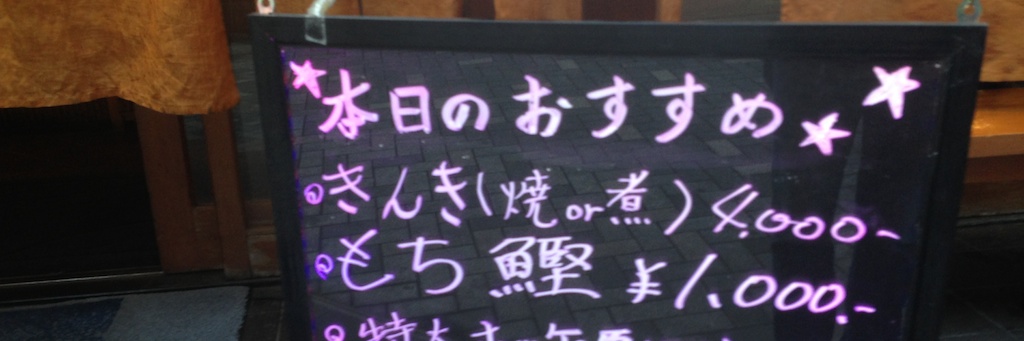 本日のおすすめ
きんき(焼or煮) 4,000-
もち鰹 ¥1,000.-
特大